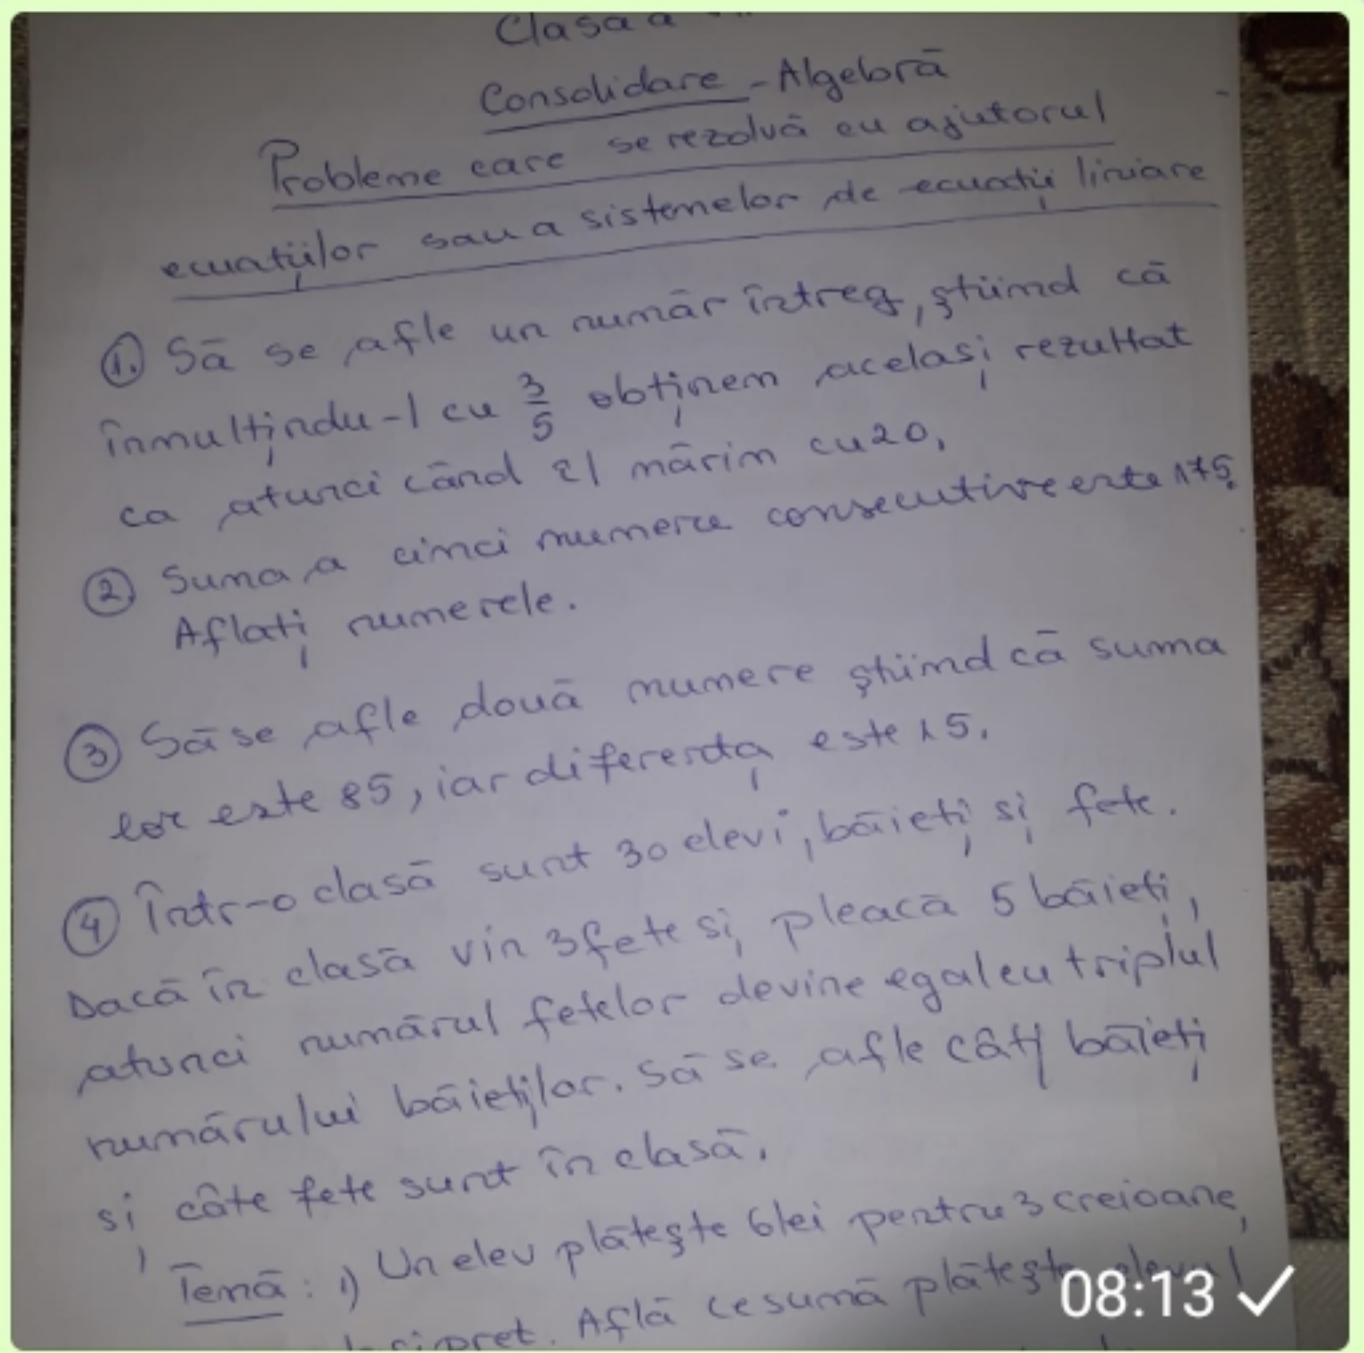 Clasa a
Consolidare - Algebră
Probleme care se rezolvă cu ajutorul
ecuațiilor sau a sistemelor de ecuații liniare
1. Să se afle un număr întreg, știind că
înmulțindu-l cu 3/5 obținem același rezultat
ca atunci când îl mărim cu 20.
2. Suma a cinci numere consecutive este 175.
Aflați numerele.
3 Să se afle două numere știind că suma
lor este 85, iar diferența este 15.
4 Într-o clasă sunt 30 elevi, băieți și fete.
Dacă în clasă vin 3 fete și pleacă 5 băieți,
atunci numărul fetelor devine egal cu triplul
numărului băieților. Să se afle câți băieți
și câte fete sunt în clasă.
Temă: 1) Un elev plătește 6 lei pentru 3 creioane,
preț. Află ce sumă plătește elevul
08:13 ✓